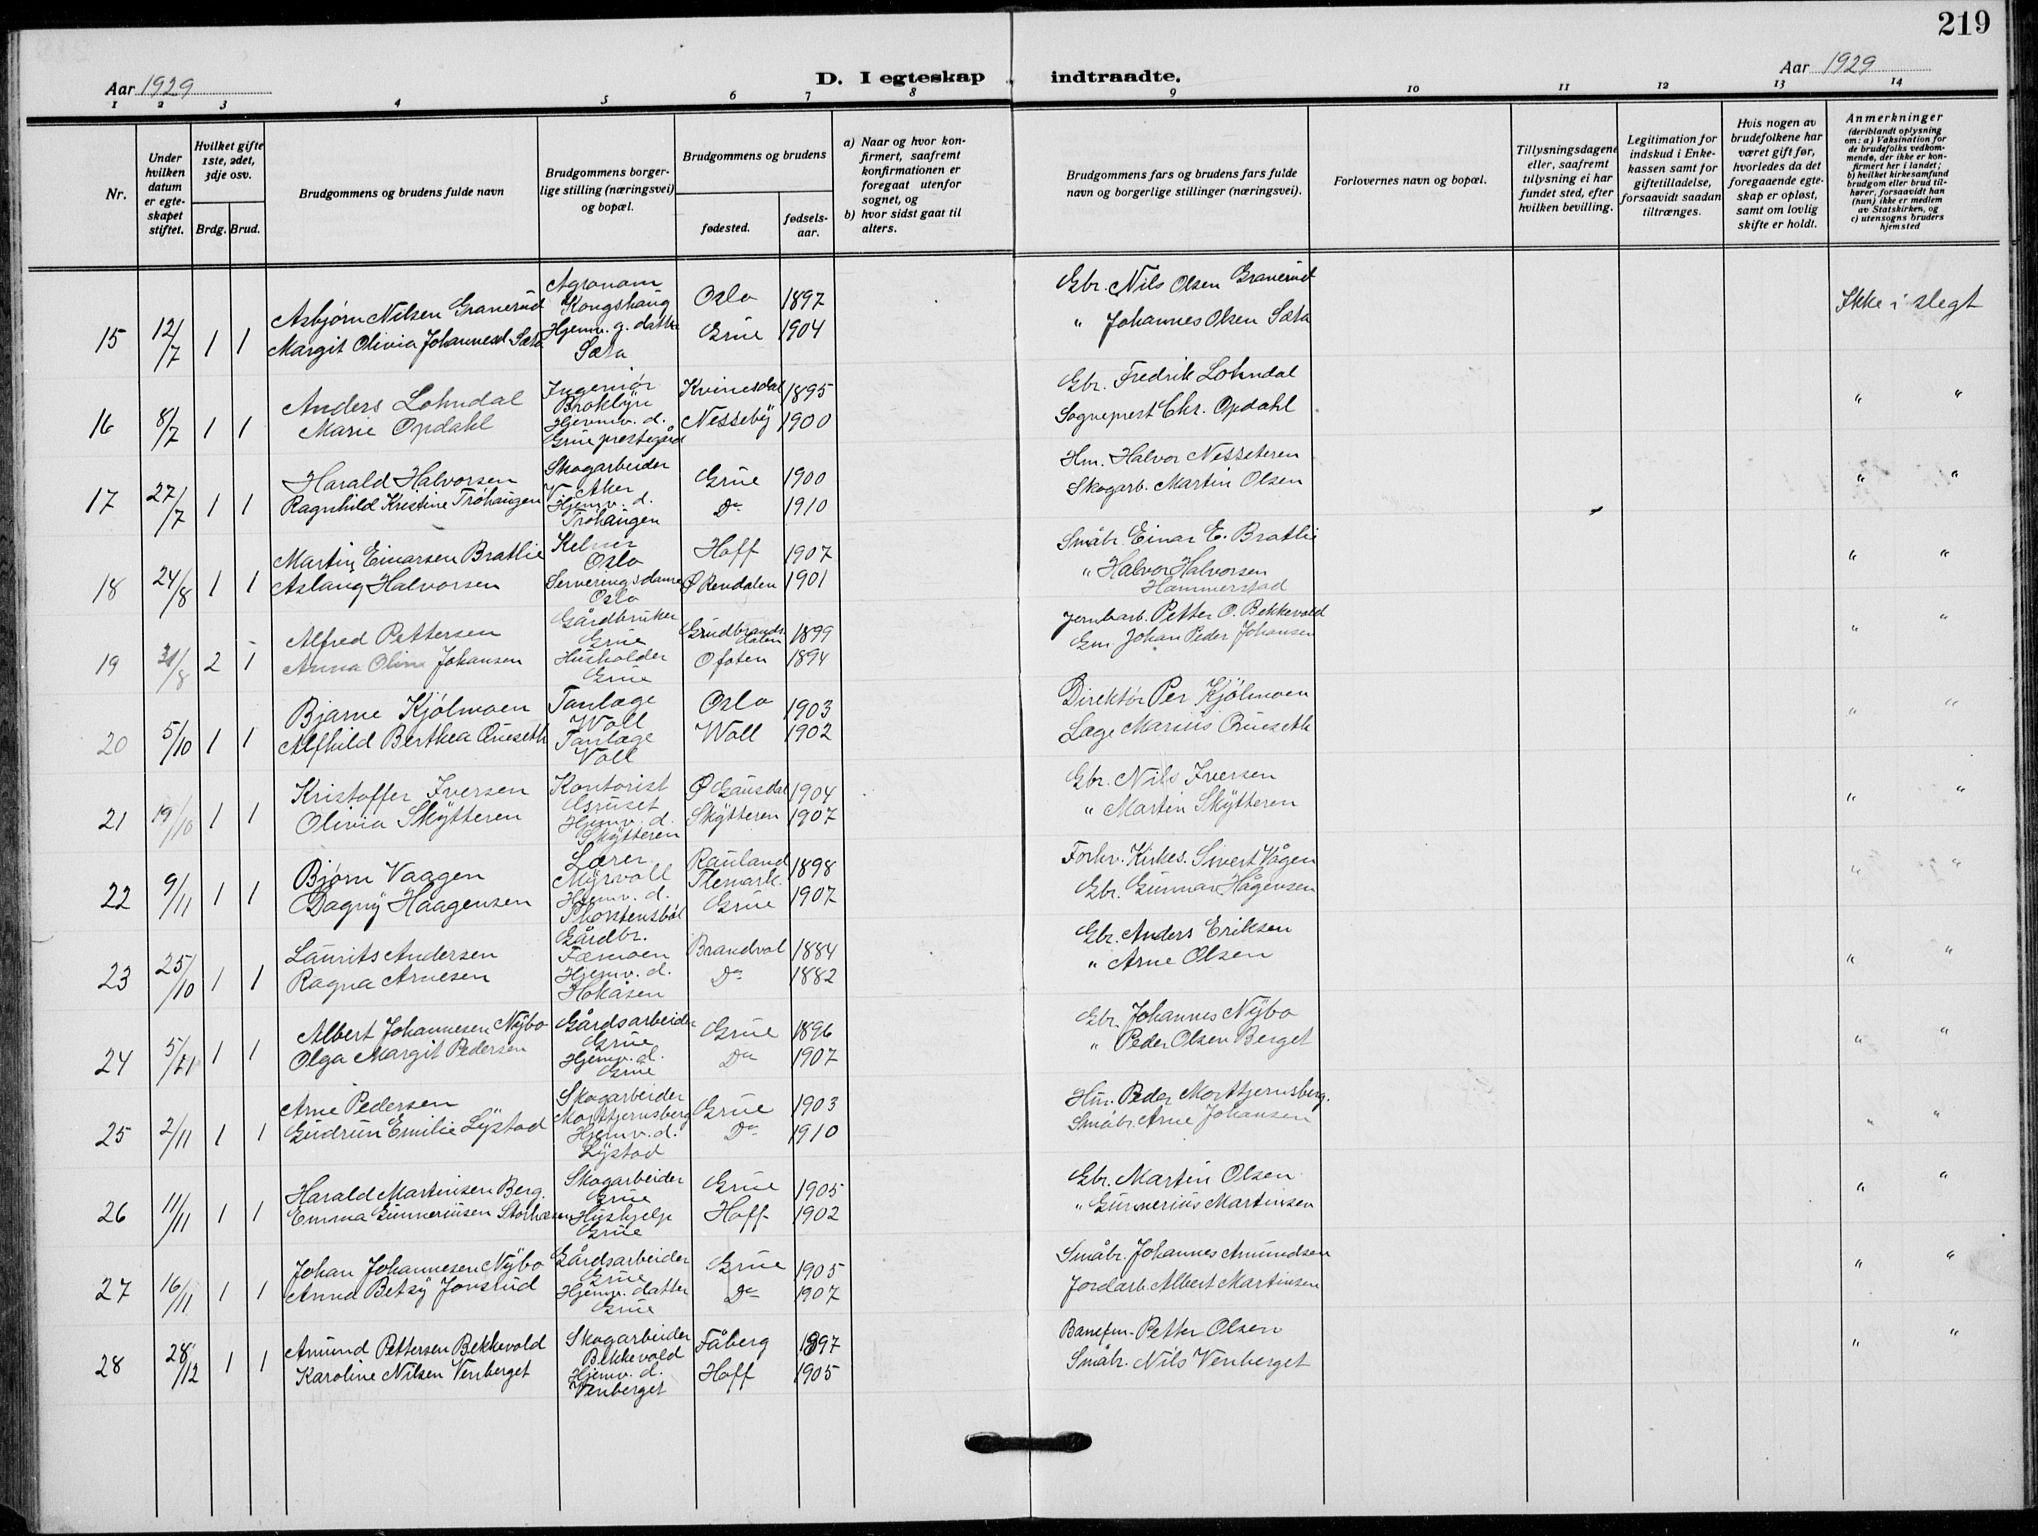 219
Aar 1929
D. I egteskap indtraadte.
Aar 1929
1 2 3 4 5 6 7 8 9 10 11 12 13 14
Nr.
Under hvilken datum er egteskapet stiftet.
Hvilket gifte 1ste, 2det, 3dje osv.
Brdg. Brud.
Brudgommens og brudens fulde navn
Brudgommens borgerlige stilling (næringsvei) og bopæl.
Brudgommens og brudens
fødested.
fødselsaar.
a) Naar og hvor konfirmert, saafremt konfirmationen er foregaat utenfor sognet, og
b) hvor sidst gaat til alters.
Brudgommens fars og brudens fars fulde navn og borgerlige stillinger (næringsvei).
Forlovernes navn og bopæl.
Tillysningsdagene eller, saafremt tillysning ei har fundet sted, efter hvilken bevilling.
Legitimation for indskud i Enkekassen samt for giftetilladelse, forsaavidt saadan tiltrænges.
Hvis nogen av brudefolkene har været gift før, hvorledes da det foregaaende egteskap er opløst, samt om lovlig skifte er holdt.
Anmerkninger
(deriblandt oplysning om: a) Vaksination for de brudefolks vedkommende, der ikke er konfirmert her i landet; b) hvilket kirkesamfund brudgom eller brud tilhører, forsaavidt han (hun) ikke er medlem av Statskirken, og c) utensogns bruders hjemsted
15 12/7 1 1
Asbjørn Nilsen Granerud Agronom Kongshaug Oslo 1897 Gbr. Nils Olsen Granerud Ikke i slegt
Margit Olivia Johannesd. Sæta Hjemv. g. datter Sæta Grue 1904 " Johannes Olsen Sæta
16 8/7 1 1
Anders Lohndal Ingeniør Broklyn Kvinesdal 1895 Gbr. Fredrik Lohndal " "
Marie Opdahl Hjemv. d. Grue prestegård Nesseby 1900 Sogneprest Chr. Opdahl
17 27/7 1 1
Harald Halvorsen Skogarbeider V. Aker Grue 1900 Hm. Halvor Nesseteren " "
Ragnhild Kristine Trøhaugen Hjemv. d. Trøhaugen Do 1910 Skogarb. Martin Olsen
18 24/8 1 1
Martin Einarsen Bratlie Kelner Oslo Hoff 1907 Småbr. Einar E. Bratlie " "
Aslaug Halvorsen Serveringsdame Oslo Ø Rendalen 1901 " Halvor Halvorsen Hammerstad
19 31/8 2 1
Alfred Pettersen Gårdbruker Grue Gudbrandsdalen 1899 Jernbarb. Petter O. Bekkevold " "
Anna Oline Johansen Husholder Grue Ofoten 1894 Gm. Johan Peder Johansen
20 5/10 1 1
Bjarne Kjølmoen Tanlæge Woll Oslo 1903 Direktør Per Kjølmoen " "
Alfhild Berthea Grueseth Tanlæge Voll Woll 1902 Læge Marius Grueseth
21 19/10 1 1
Kristoffer Iversen Kontorist Gruset Ø Gausdal 1904 Gbr. Nils Iversen " "
Olivia Skytteren Hjemv. d. Skytteren Skytteren 1907 " Martin Skytteren
22 9/11 1 1
Bjørn Vaagen Lærer Myrvoll Rauland Tlemark. 1898 Forhv. Kirkes. Sivert Vågen " "
Dagny Haagensen Hjemv. d. Thorstensbøl Grue 1907 Gbr. Gunnar Hågensen
23 25/10 1 1
Laurits Andersen Gårdbr. Tæmoen Brandvol 1884 Gbr. Anders Eriksen " "
Ragna Arnesen Hjemv. d. Hokåsen Do 1882 " Arne Olsen
24 5/11 1 1
Albert Johannesen Nybo Gårdsarbeider Grue Grue 1896 Gbr. Johannes Nybo " "
Olga Margit Pedersen Hjemv. d. Grue Do 1907 " Peder Olsen Berget
25 2/11 1 1
Arne Pedersen Skogarbeider Morttjernsberg Grue 1903 Hm. Peder Morttjernsberg. " "
Gudrun Emilie Lystad Hjemv. d. Lystad Do 1910 Småbr. Arne Johansen
26 11/11 1 1
Harald Martinsen Berg. Skogarbeider Grue Grue 1905 Gbr. Martin Olsen " "
Emma Gunneriusen Hushjelp Grue Hoff 1902 " Gunnerius Martinsen
27 16/11 1 1
Johan Johannesen Nybo Gårdsarbeider Grue Grue 1905 Småbr. Johannes Amundsen " "
Anna Betsy Jonsrud Hjemv. datter Grue Do 1907 Jordarb. Albert Martinsen
28 28/12 1 1
Amund Pettersen Bekkevold Skogarbeider Bekkevold Fåberg 1897 Banefm. Petter Olsen " "
Karoline Nilsen Venberget Hjemv. d. Venberget Hoff 1905 Småbr. Nils Venberget